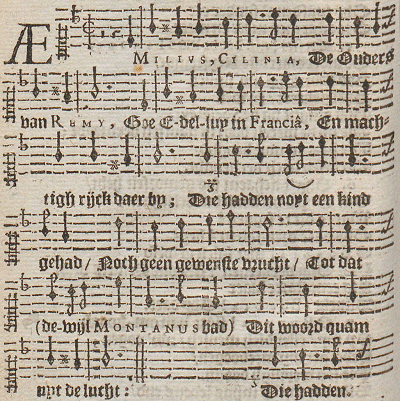 ÆMILIVS, CILINIA, De Ouders
van REMY, Goe E-del-luy in Franciâ, En mach-
tigh rijck daer by; Die hadden noyt een kind
gehad / Noch geen gewenste vrucht / Tot dat
(de-wyl MONTANUS bad) Dit woord quam
uyt de lucht: Die hadden.